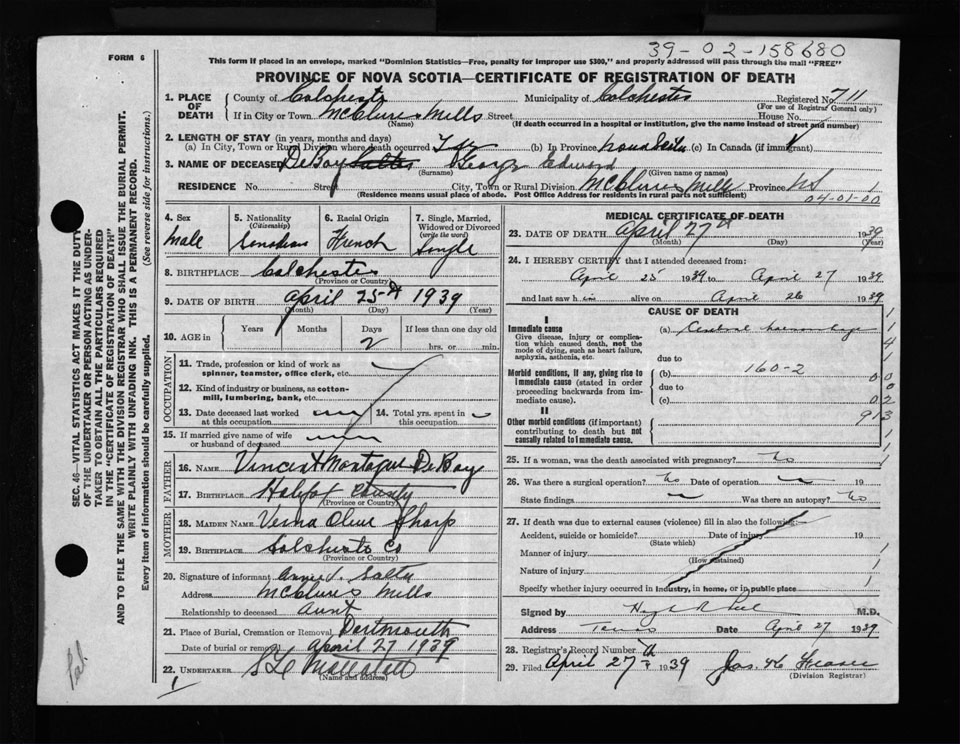 39-02-158680
FORM 6
This form if placed in an envelope, marked "Dominion Statistics—Free, penalty for improper use $300," and properly addressed will pass through the mail "FREE"
PROVINCE OF NOVA SCOTIA—CERTIFICATE OF REGISTRATION OF DEATH
1. PLACE OF DEATH County of Colchester Municipality of Colchester Registered No. 711
(For use of Registrar General only)
If in City or Town McClures Mills Street House No.
(Name) (If death occurred in a hospital or institution, give the name instead of street and number)
2. LENGTH OF STAY (in years, months and days)
(a) In City, Town or Rural Division where death occurred (b) In Province Nova Scotia (c) In Canada (if immigrant)
3. NAME OF DECEASED DeBay Salter George Edward
(Surname) (Given name or names)
RESIDENCE No. Street City, Town or Rural Division McClures Mills Province NS 1
(Residence means usual place of abode. Post Office Address for residents in rural parts not sufficient)
04-01-00
4. Sex 5. Nationality (Citizenship) 6. Racial Origin 7. Single, Married, Widowed or Divorced (write the word)
Male Canadian French Single
8. BIRTHPLACE Colchester
(Province or County)
9. DATE OF BIRTH April 25th 1939
(Month) (Day) (Year)
10. AGE in Years Months Days If less than one day old
2 hrs. or min.
OCCUPATION
11. Trade, profession or kind of work as spinner, teamster, office clerk, etc.
12. Kind of industry or business, as cotton-mill, lumbering, bank, etc.
13. Date deceased last worked at this occupation 14. Total yrs. spent in this occupation
15. If married give name of wife or husband of deceased
FATHER
16. NAME Vincent Montague DeBay
17. BIRTHPLACE Halifax County
(Province or County)
MOTHER
18. MAIDEN NAME Verna Olive Sharp
19. BIRTHPLACE Colchester Co
(Province or Country)
20. Signature of informant Annie J. Salter
Address McClures Mills
Relationship to deceased Aunt
21. Place of Burial, Cremation or Removal Dartmouth
Date of burial or removal April 27 1939
22. UNDERTAKER
(Name and address)
MEDICAL CERTIFICATE OF DEATH
23. DATE OF DEATH April 27th 1939
(Month) (Day) (Year)
24. I HEREBY CERTIFY that I attended deceased from:
April 25 1939 to April 27 1939
and last saw him alive on April 26 1939
CAUSE OF DEATH
I
Immediate cause (a) Cerebral haemorrhage
Give disease, injury or complication which caused death, not the mode of dying, such as heart failure, asphyxia, asthenia, etc.
due to
Morbid conditions, if any, giving rise to immediate cause (stated in order proceeding backwards from immediate cause).
(b) 160-2
due to
(c)
II
Other morbid conditions (if important) contributing to death but not causally related to immediate cause.
1
1
4
1
00
0
02
913
1
1
25. If a woman, was the death associated with pregnancy? No
26. Was there a surgical operation? No Date of operation 19
State findings Was there an autopsy? No
27. If death was due to external causes (violence) fill in also the following:—
Accident, suicide or homicide? Date of injury 19
(State which)
Manner of injury
(How sustained)
Nature of injury
Specify whether injury occurred in industry, in home, or in public place
1
1
1
Signed by M.D.
Address Truro Date April 27 1939
28. Registrar's Record Number
29. Filed April 27th 1939 Jas. H Fraser
(Division Registrar)
SEC. 46—VITAL STATISTICS ACT MAKES IT THE DUTY OF THE UNDERTAKER OR PERSON ACTING AS UNDERTAKER TO OBTAIN ALL THE PARTICULARS REQUIRED IN THE "CERTIFICATE OF REGISTRATION OF DEATH"
AND TO FILE THE SAME WITH THE DIVISION REGISTRAR WHO SHALL ISSUE THE BURIAL PERMIT.
WRITE PLAINLY WITH UNFADING INK. THIS IS A PERMANENT RECORD.
Every item of information should be carefully supplied. (See reverse side for instructions.)
1